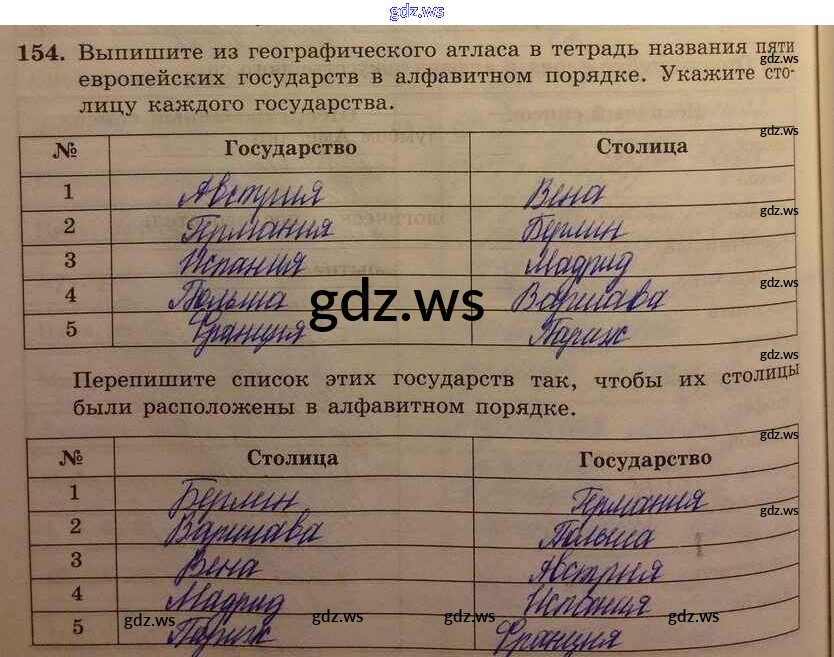 gdz.ws
154. Выпишите из географического атласа в тетрадь названия пяти
европейских государств в алфавитном порядке. Укажите сто-
лицу каждого государства.
gdz.ws
gdz.ws
№ Государство Столица
1 Австрия Вена
gdz.ws
2 Германия Берлин
3 Испания Мадрид
gdz.ws
4 Польша Варшава
gdz.ws
5 Франция Париж
gdz.ws
Перепишите список этих государств так, чтобы их столицы
были расположены в алфавитном порядке.
gdz.ws
№ Столица Государство
1 Берлин Германия
gdz.ws
2 Варшава Польша
3 Вена Австрия
4 Мадрид Испания
gdz.ws gdz.ws gdz.ws gdz.ws gdz.ws
5 Париж Франция